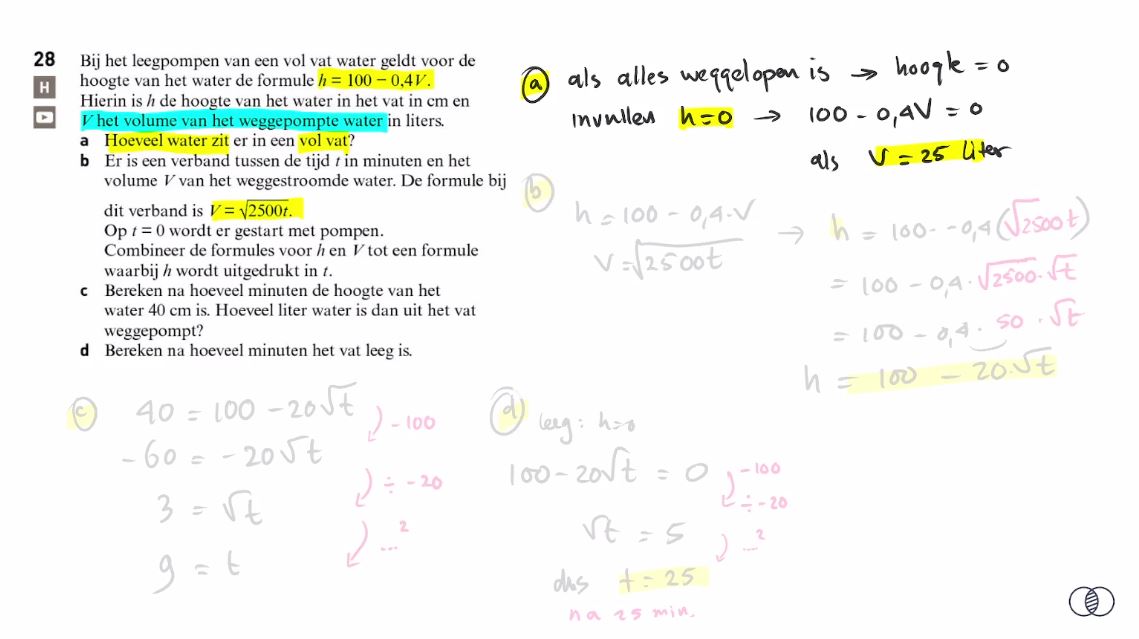 28 Bij het leegpompen van een vol vat water geldt voor de
hoogte van het water de formule h = 100 − 0,4V.
H
Hierin is h de hoogte van het water in het vat in cm en
V het volume van het weggepompte water in liters.
a Hoeveel water zit er in een vol vat?
b Er is een verband tussen de tijd t in minuten en het
volume V van het weggestroomde water. De formule bij
dit verband is V = √2500t.
Op t = 0 wordt er gestart met pompen.
Combineer de formules voor h en V tot een formule
waarbij h wordt uitgedrukt in t.
c Bereken na hoeveel minuten de hoogte van het
water 40 cm is. Hoeveel liter water is dan uit het vat
weggepompt?
d Bereken na hoeveel minuten het vat leeg is.
a als alles weggelopen is → hoogte = 0
invullen h=0 → 100 - 0,4V = 0
als V = 25 liter
b
h = 100 - 0,4.V
V = √2500t
→ h = 100 - 0,4(√2500t)
= 100 - 0,4.√2500.√t
= 100 - 0,4. 50 .√t
h = 100 - 20.√t
c 40 = 100 - 20√t
-100
-60 = -20√t
÷ -20
3 = √t
...²
9 = t
d leeg: h=0
100 - 20√t = 0
-100
÷ -20
√t = 5
...²
dus t = 25
na 25 min.